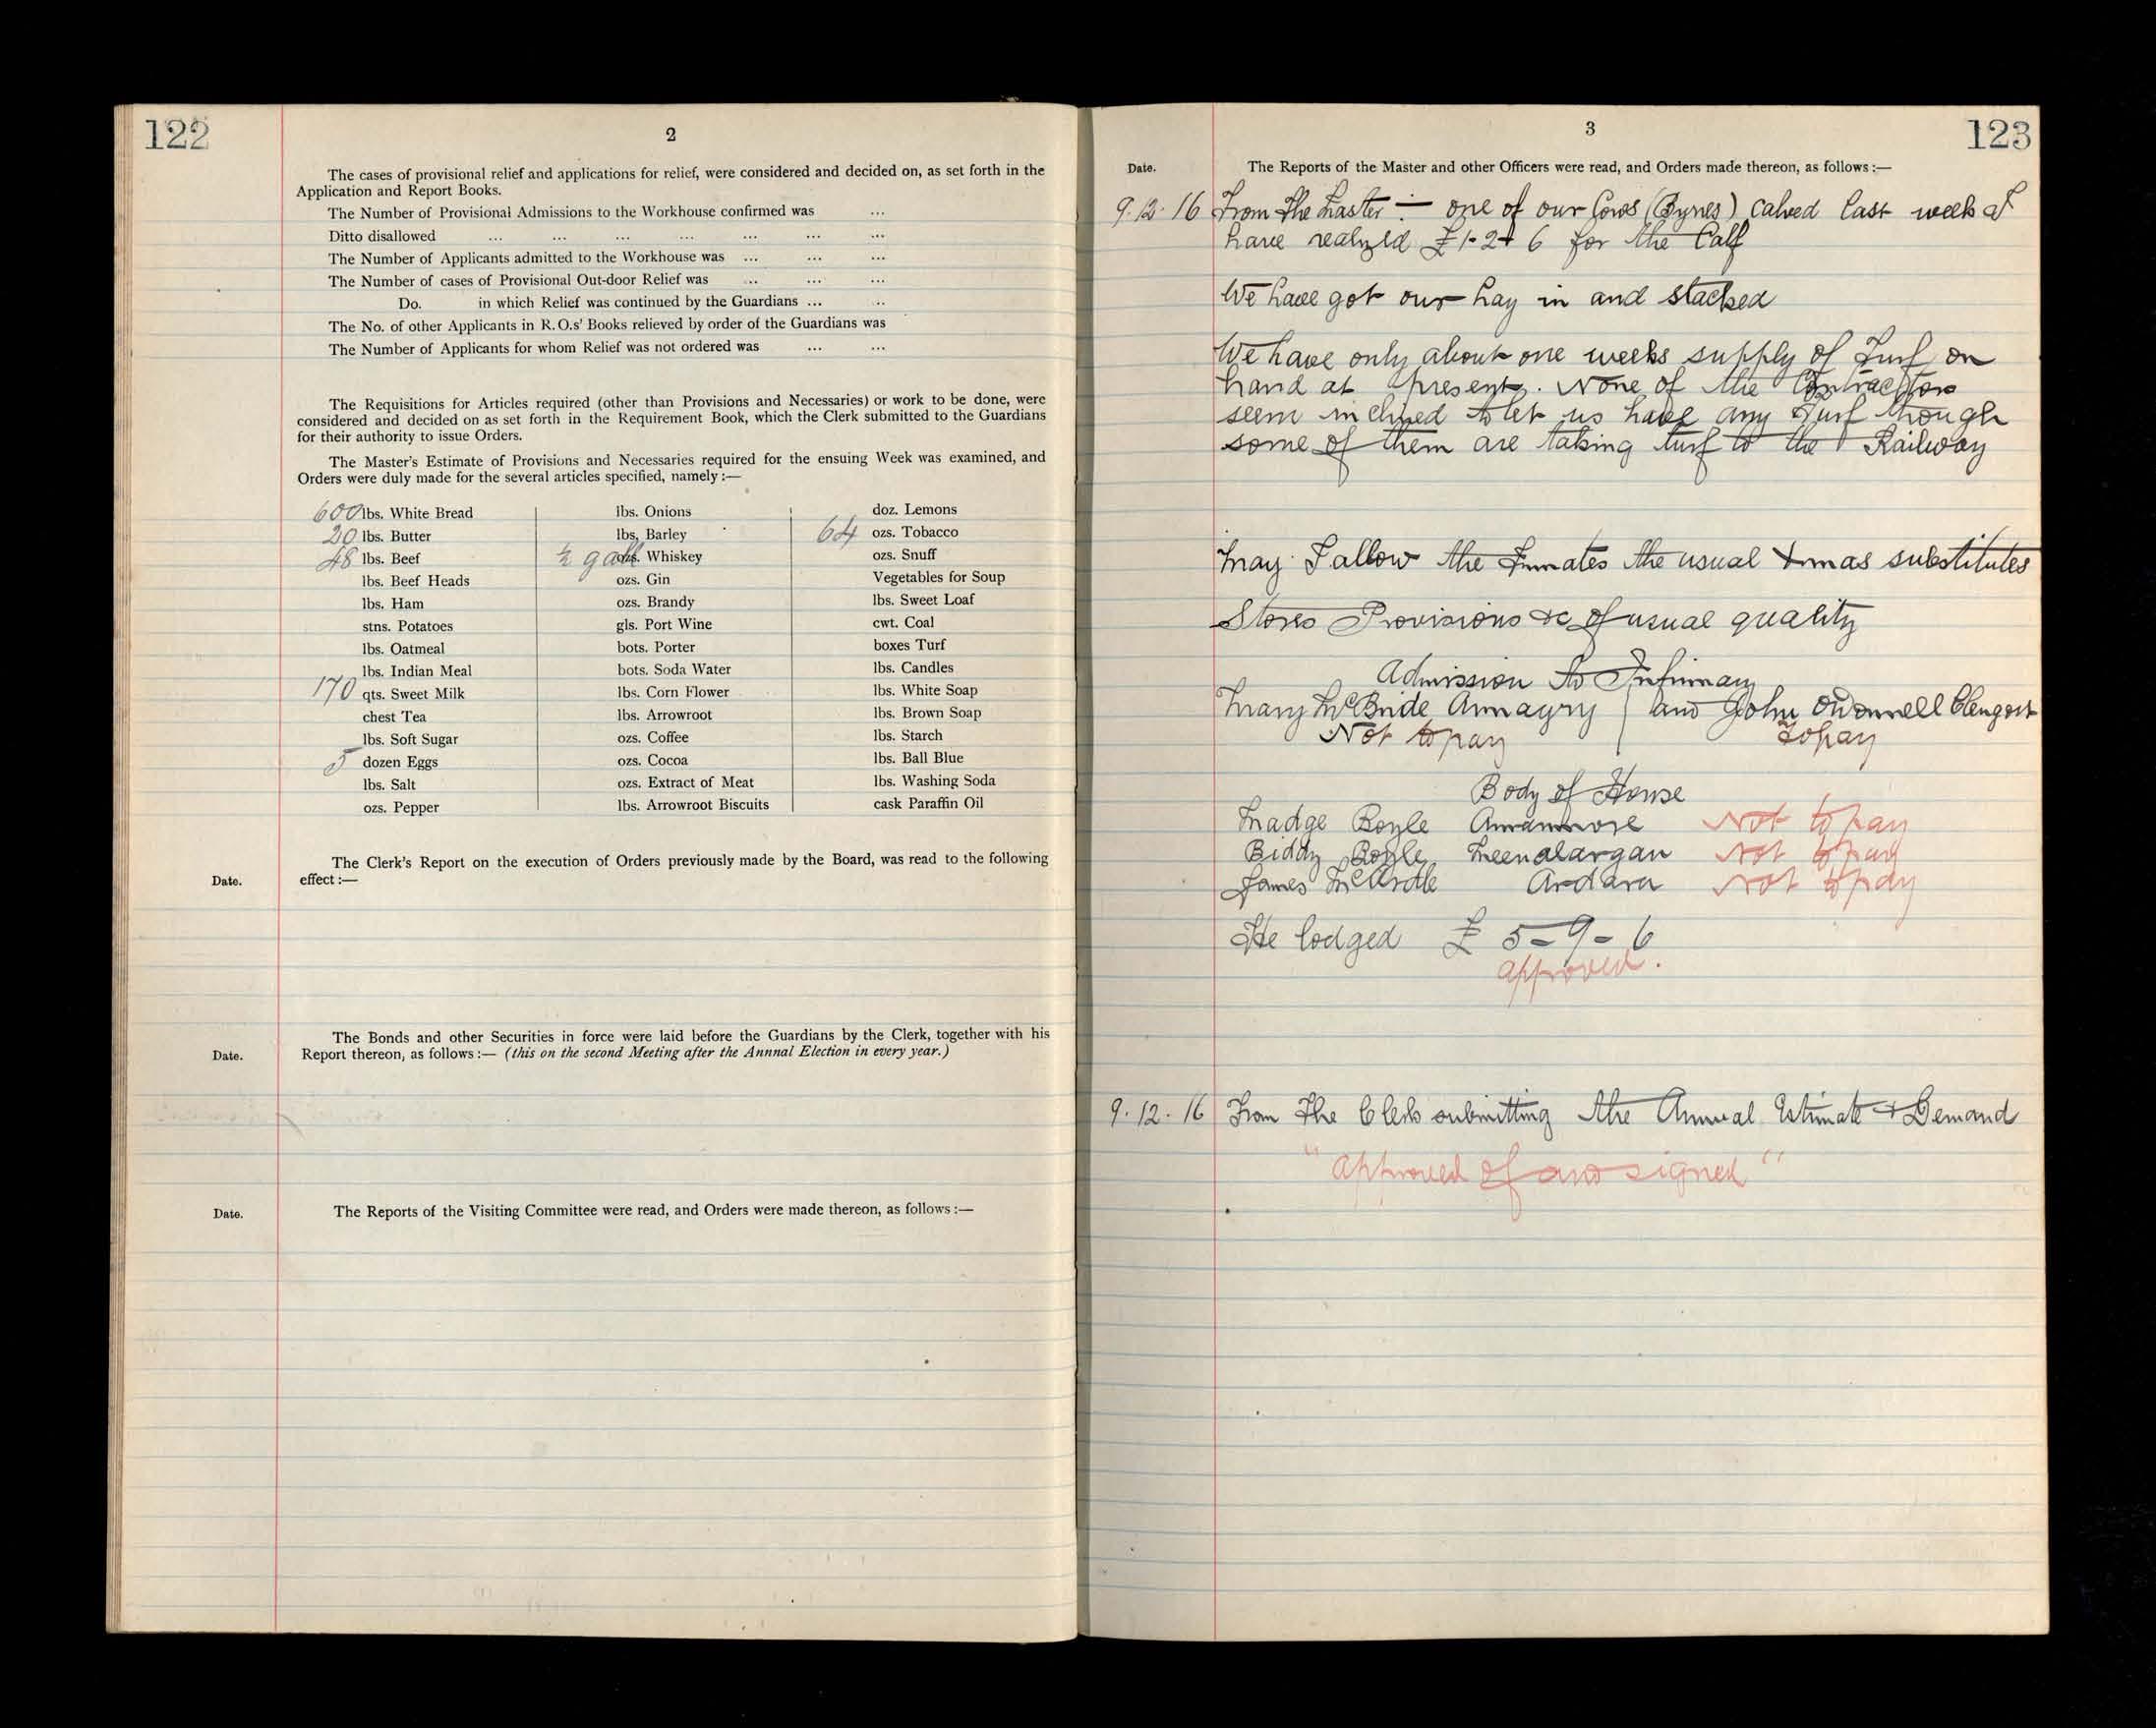 122
2
The cases of provisional relief and applications for relief, were considered and decided on, as set forth in the
Application and Report Books.
The Number of Provisional Admissions to the Workhouse confirmed was ...
Ditto disallowed ... ... ... ... ... ... ...
The Number of Applicants admitted to the Workhouse was ... ... ...
The Number of cases of Provisional Out-door Relief was ... ... ...
Do. in which Relief was continued by the Guardians ... ...
The No. of other Applicants in R.O.s' Books relieved by order of the Guardians was
The Number of Applicants for whom Relief was not ordered was ... ...
The Requisitions for Articles required (other than Provisions and Necessaries) or work to be done, were
considered and decided on as set forth in the Requirement Book, which the Clerk submitted to the Guardians
for their authority to issue Orders.
The Master's Estimate of Provisions and Necessaries required for the ensuing Week was examined, and
Orders were duly made for the several articles specified, namely :—
600 lbs. White Bread
20 lbs. Butter
48 lbs. Beef
lbs. Beef Heads
lbs. Ham
stns. Potatoes
lbs. Oatmeal
lbs. Indian Meal
170 qts. Sweet Milk
chest Tea
lbs. Soft Sugar
5 dozen Eggs
lbs. Salt
ozs. Pepper
lbs. Onions
lbs. Barley
½ gall. ozs. Whiskey
ozs. Gin
ozs. Brandy
gls. Port Wine
bots. Porter
bots. Soda Water
lbs. Corn Flower
lbs. Arrowroot
ozs. Coffee
ozs. Cocoa
ozs. Extract of Meat
lbs. Arrowroot Biscuits
doz. Lemons
64 ozs. Tobacco
ozs. Snuff
Vegetables for Soup
lbs. Sweet Loaf
cwt. Coal
boxes Turf
lbs. Candles
lbs. White Soap
lbs. Brown Soap
lbs. Starch
lbs. Ball Blue
lbs. Washing Soda
cask Paraffin Oil
The Clerk's Report on the execution of Orders previously made by the Board, was read to the following
Date. effect :—
The Bonds and other Securities in force were laid before the Guardians by the Clerk, together with his
Date. Report thereon, as follows :— (this on the second Meeting after the Annnal Election in every year.)
Date. The Reports of the Visiting Committee were read, and Orders were made thereon, as follows :—
3
123
Date. The Reports of the Master and other Officers were read, and Orders made thereon, as follows :—
9.12.16 From the Master :— one of our Cows (Byrnes) calved last week &
have realized £1-2-6 for the Calf
We have got our hay in and stacked
We have only about one weeks supply of Turf on
hand at present. None of the Contractors
seem inclined to let us have any Turf though
some of them are taking turf to the Railway
May I allow the Inmates the usual Xmas substitutes
Stores Provisions &c of usual quality
Admission to Infirmary
Mary McBride Annagry and John O'Donnell
Not to pay To pay
Body of House
Madge Boyle Not to pay
Biddy Boyle Meenalargan Not to pay
James McArdle Ardara Not to pay
He lodged £5-9-6
approved.
9.12.16 From the Clerk submitting the Annual Estimate & Demand
"approved of and signed"